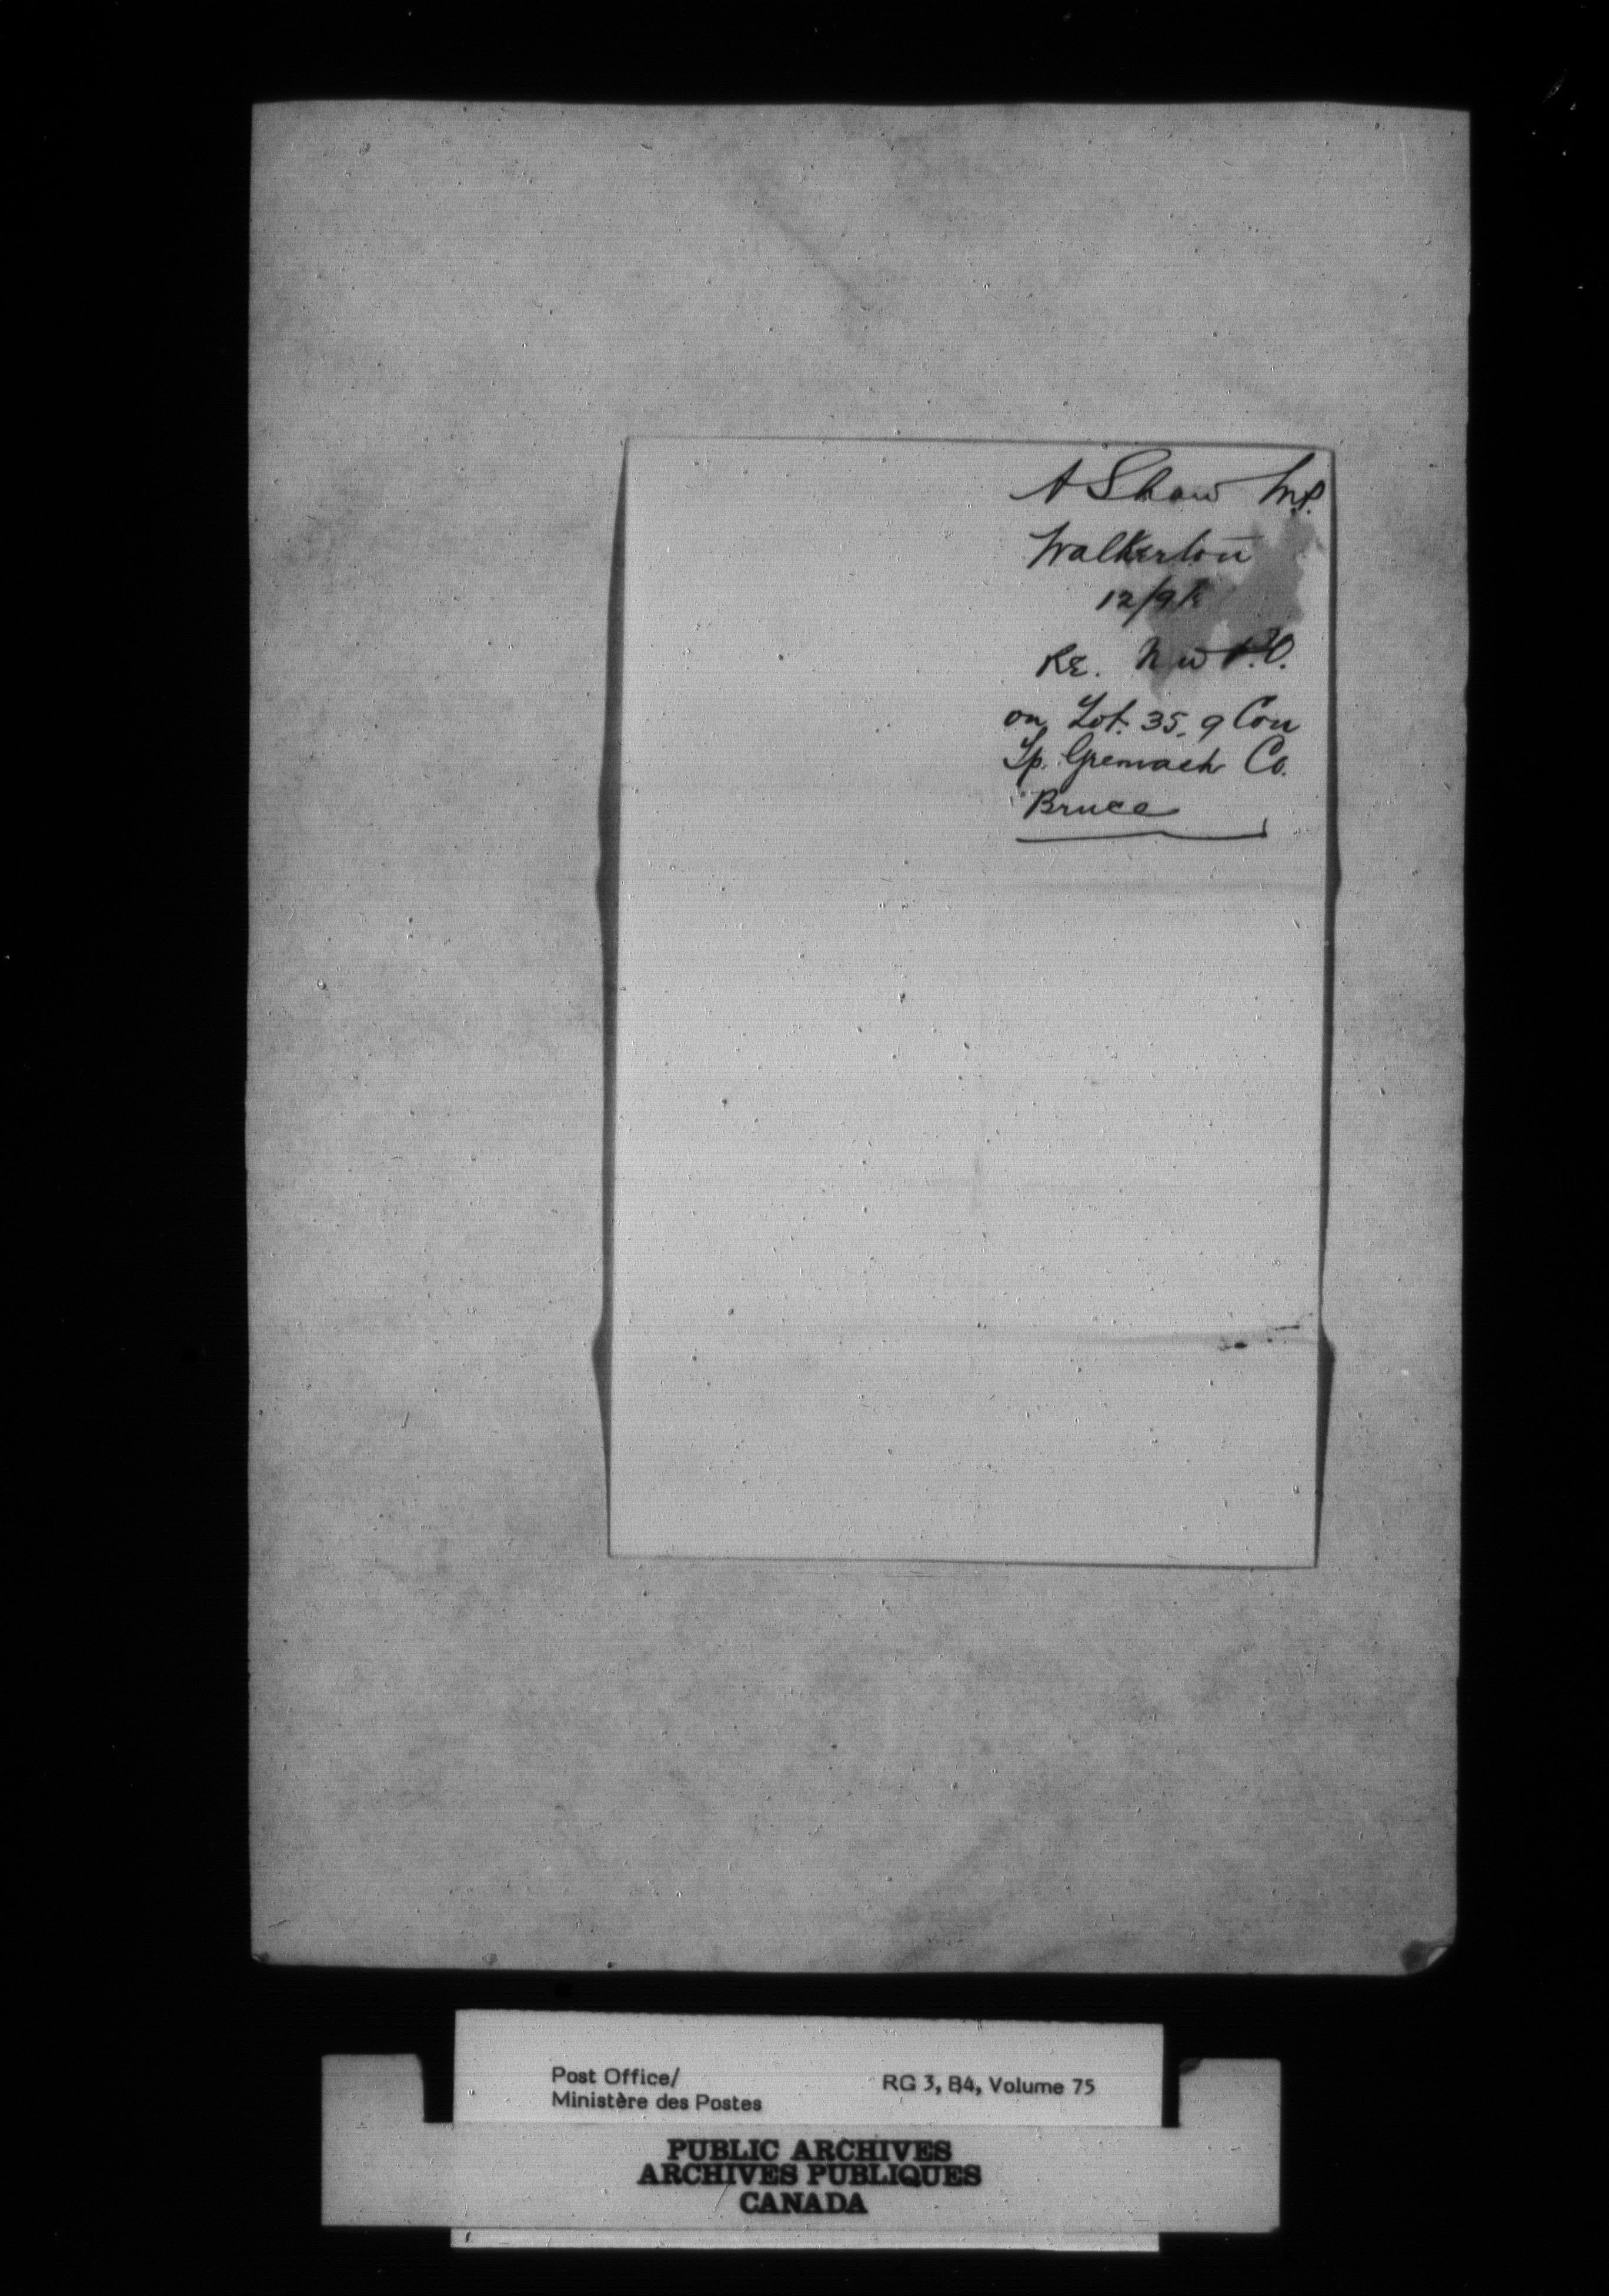 A Shaw M.P.
Walkerton
12/9/
Re. New P.O.
on Lot. 35, 9 Con
Tp. Greenock Co.
Bruce
Post Office/
Ministère des Postes
RG 3, B4, Volume 75
PUBLIC ARCHIVES
ARCHIVES PUBLIQUES
CANADA